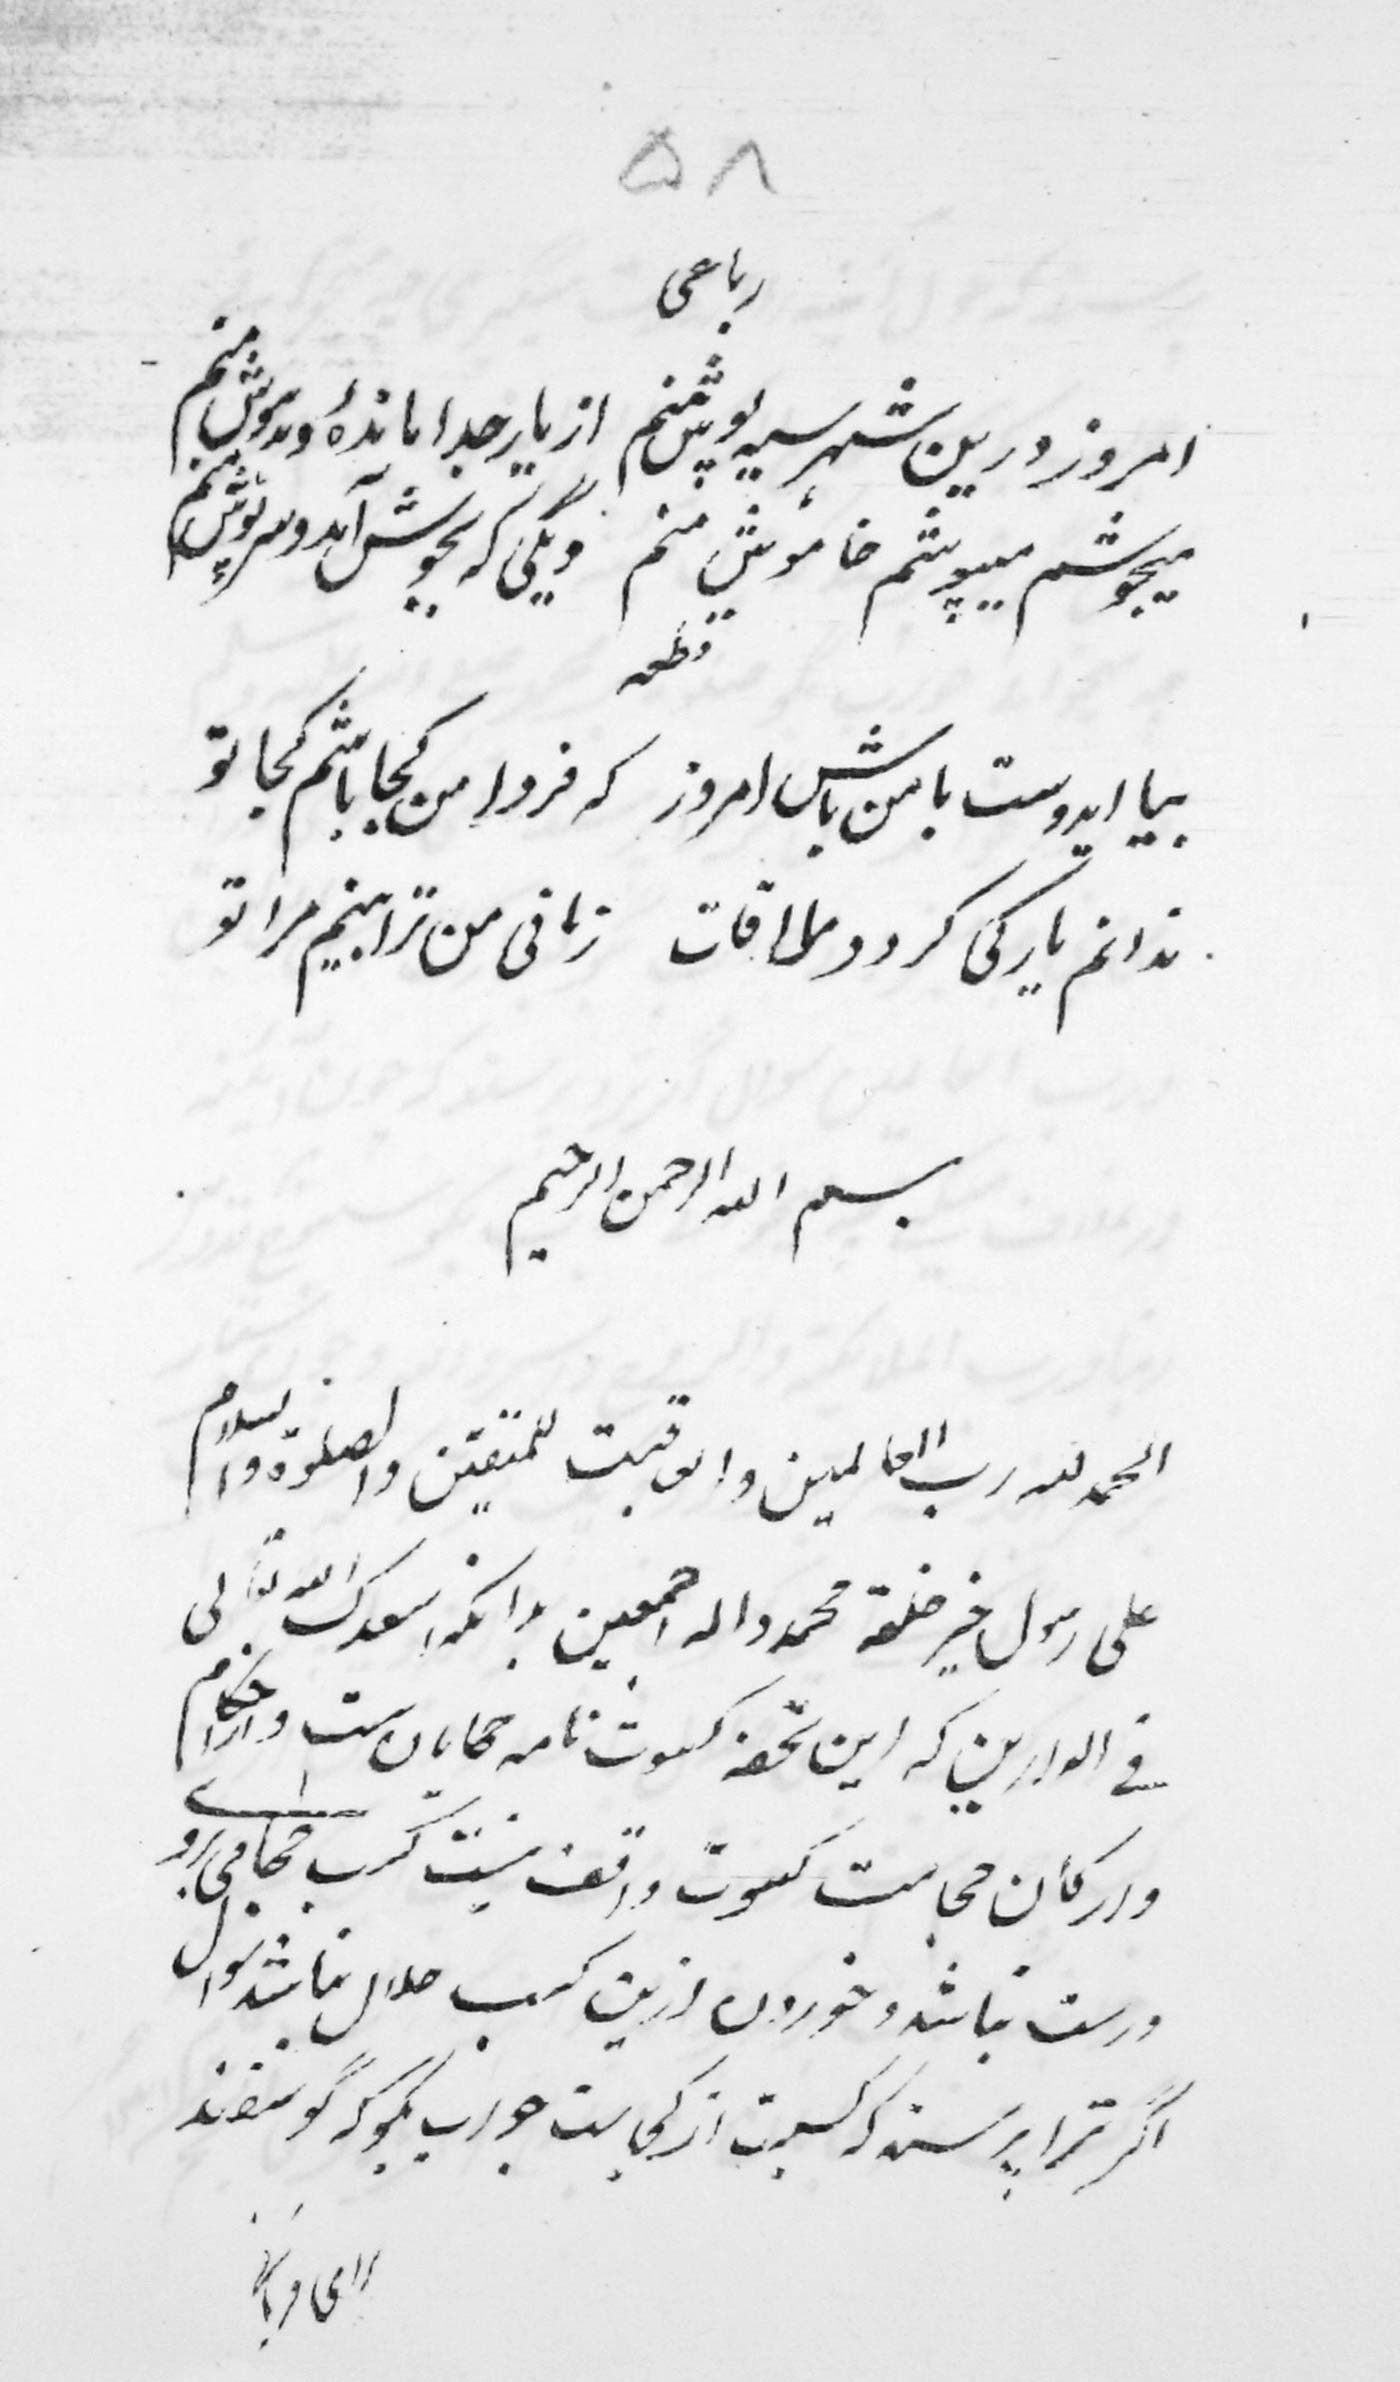 ۵۸
رباعی
امروز درین شهر سیه پوش منم از یار جدا ماندهٔ و مدهوش منم
میجوشم میپوشم خاموش منم دیگی که بجوش آید و سرپوش منم
قطعه
بیا ایدوست با من باش امروز که فردا من کجا باشم کجا تو
ندانم یار کی گردد ملاقات زمانی من ترا بینم مرا تو
بسم الله الرحمن الرحیم
الحمد لله رب العالمین والعاقبت للمتقین والصلوة والسلام
علی رسول خیر خلقه محمد واله اجمعین بدانکه اسعدک الله تعالی
فی الدارین که این تحفه کسوت نامه حجامان ست و از احکام
و ارکان حجامت کسوت واقف نیست کسب حجامی برو
درست نباشد و خوردن ازین کسب حلال نباشد سوال
اگر ترا پرسند که کسبت از کجاست جواب بگو که گوسفند